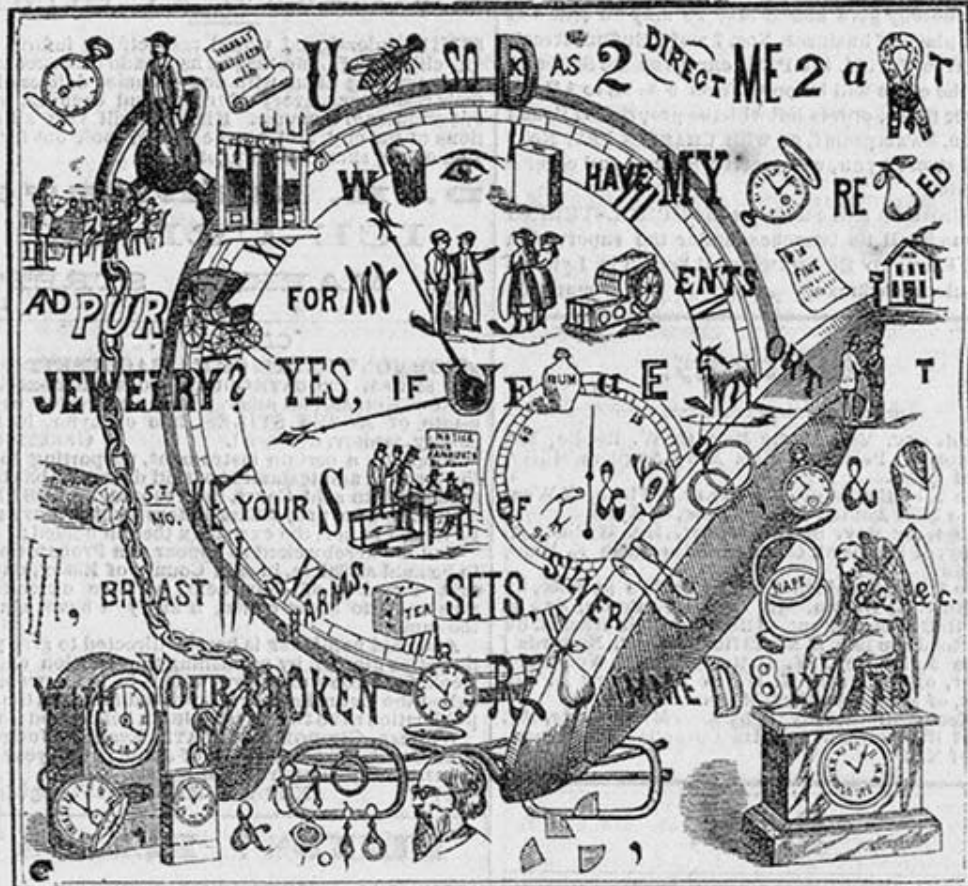 U SO D AS 2 DIRECT ME 2 a T
W HAVE MY RE ED
AND PUR FOR MY ENTS FINE
JEWELRY? YES, IF U F RUM E OR T
5TH MO. YOUR S NOTICE OF & &
, BREAST TEA SETS, SILVER NAPE &C. &C.
WITH YOUR OKEN IMMED 8 LY TO
& ,